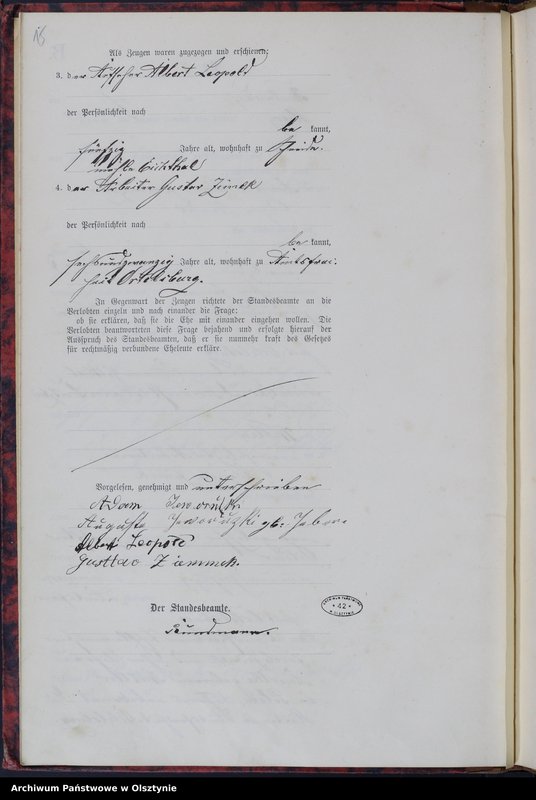 Als Zeugen waren zugezogen und erschienen:
3. der Albert Leopold
der Persönlichkeit nach
be kannt,
fünfzig Jahre alt, wohnhaft zu
4. der Arbeiter Gustav
der Persönlichkeit nach
be kannt,
sechsundzwanzig Jahre alt, wohnhaft zu Amtsfrei-
heit Ortelsburg.
In Gegenwart der Zeugen richtete der Standesbeamte an die
Verlobten einzeln und nach einander die Frage:
ob sie erklären, daß sie die Ehe mit einander eingehen wollen. Die
Verlobten beantworteten diese Frage bejahend und erfolgte hierauf der
Ausspruch des Standesbeamten, daß er sie nunmehr kraft des Gesetzes
für rechtmäßig verbundene Eheleute erkläre.
Vorgelesen, genehmigt und unterschrieben
Adam
Auguste
Albert Leopold
Gusttav Ziemmek.
Der Standesbeamte.
42
Archiwum Państwowe w Olsztynie